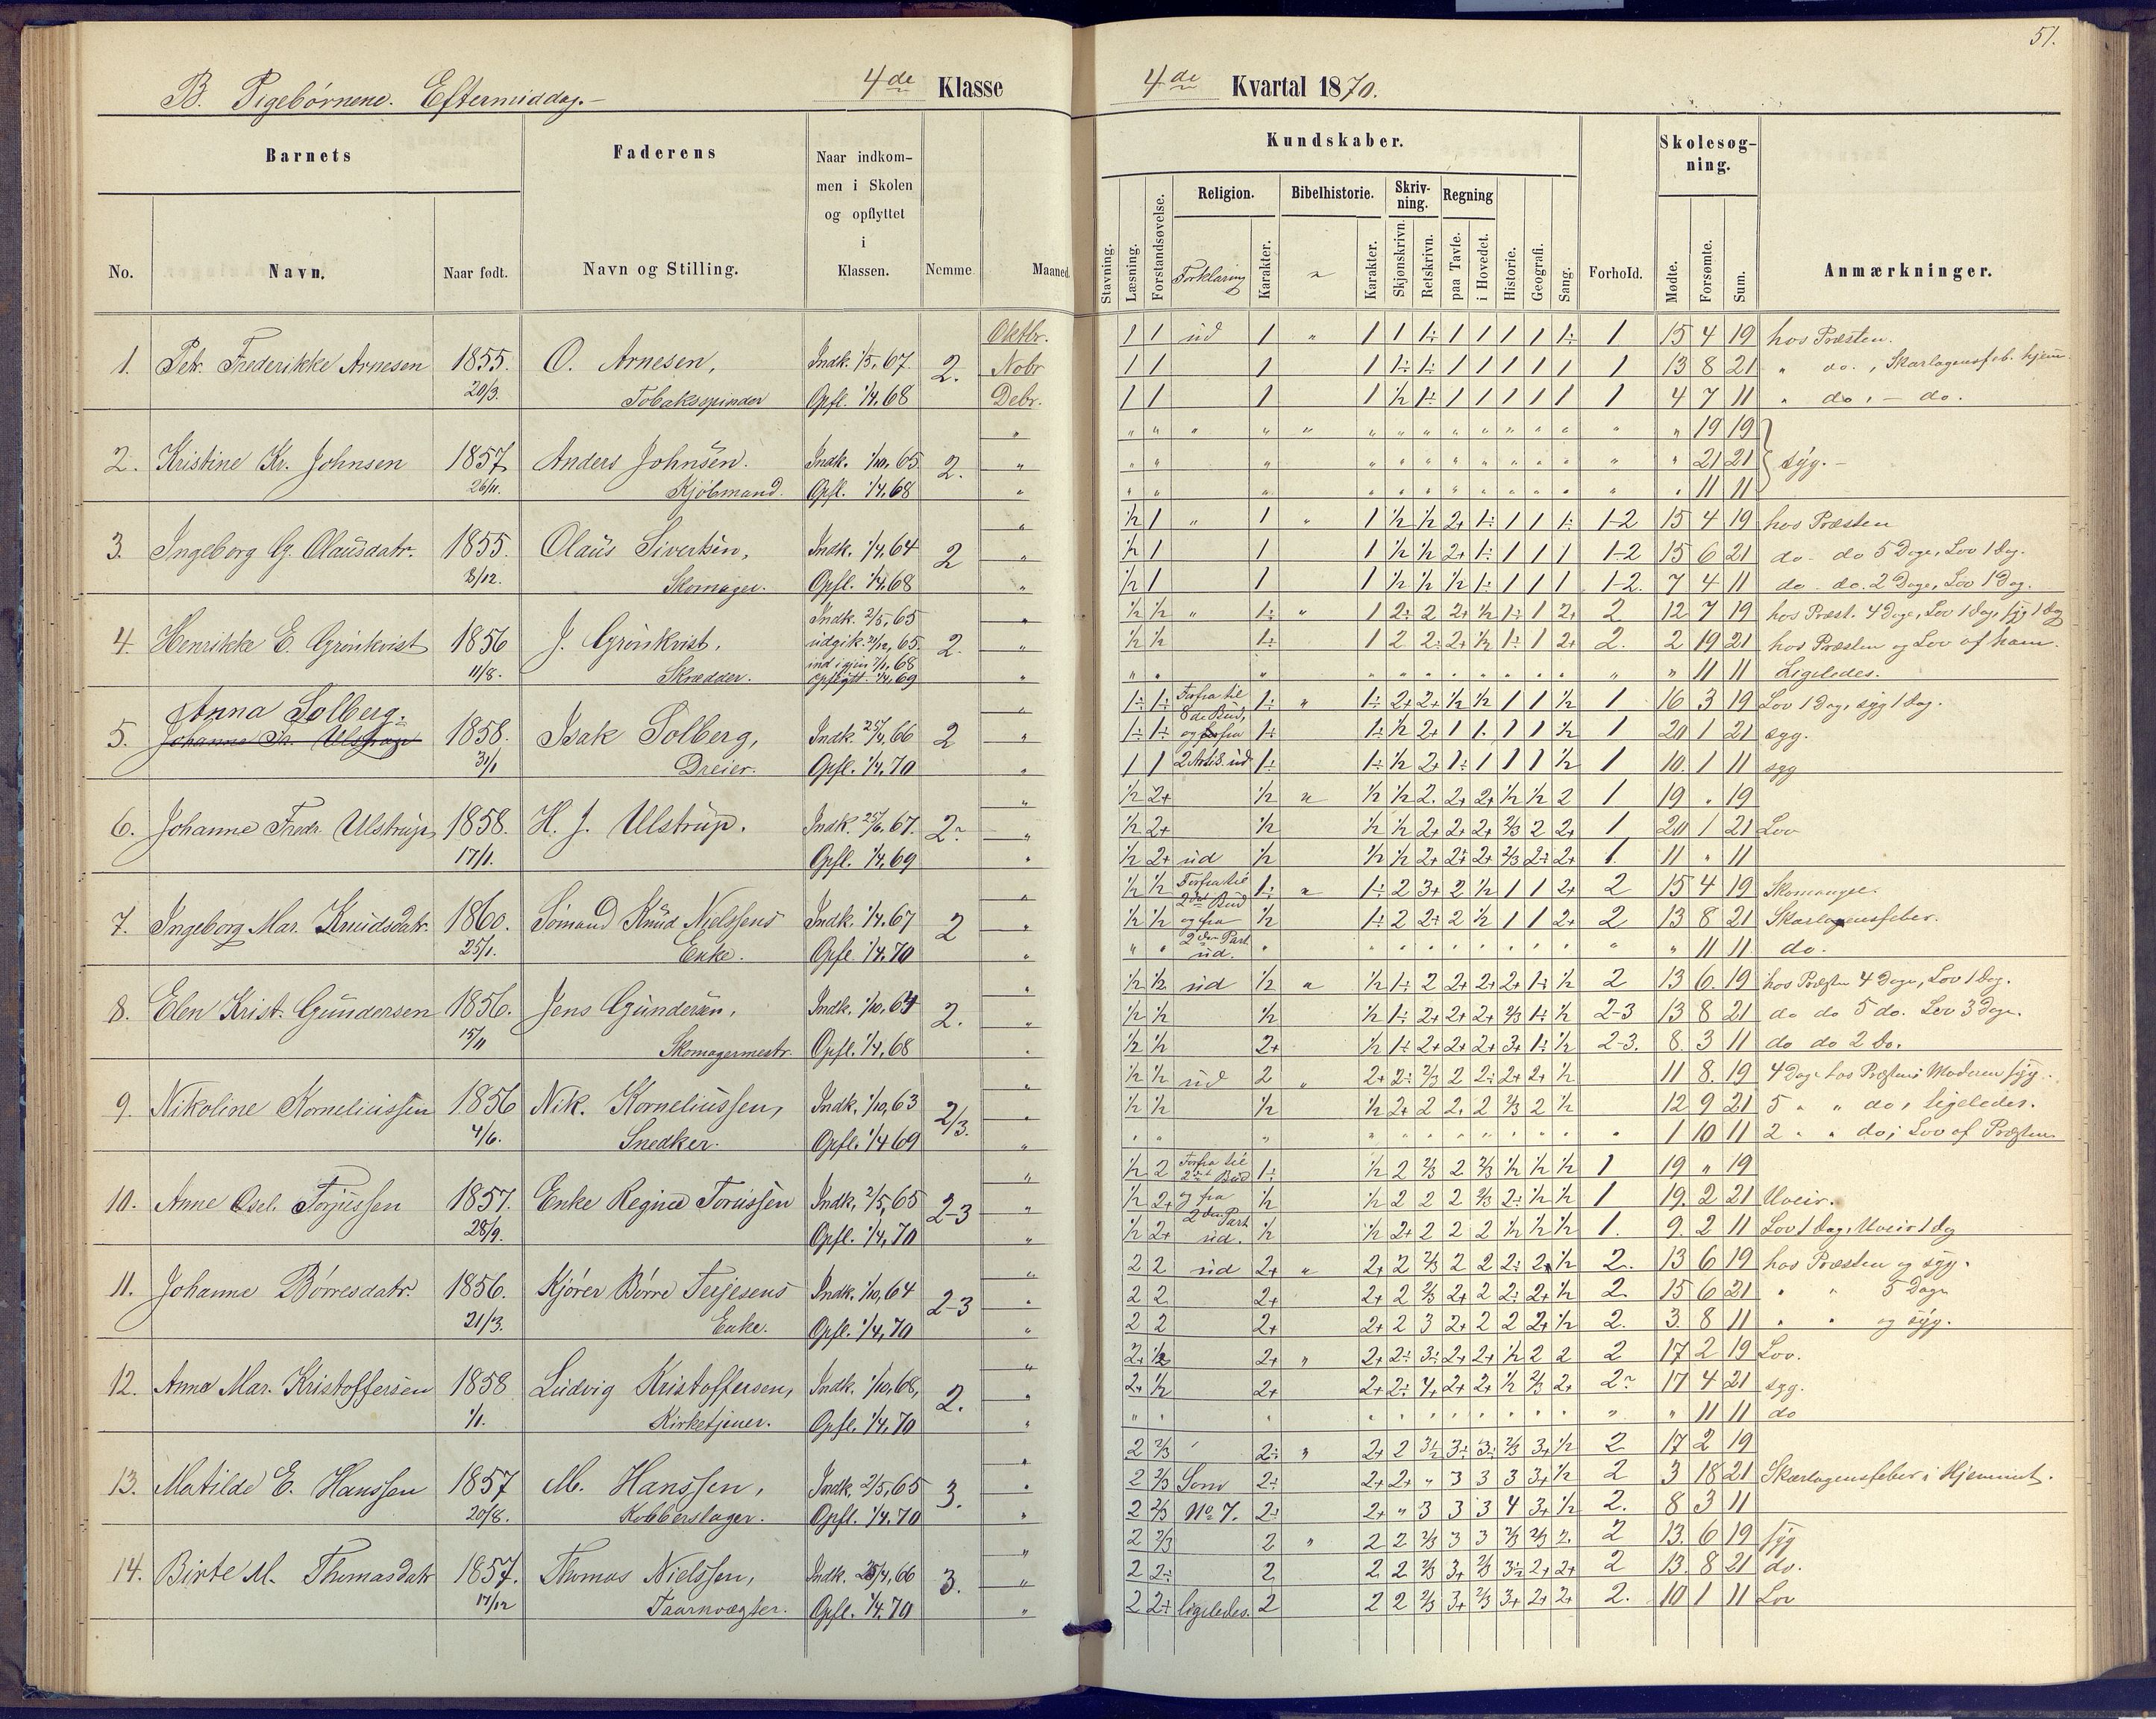 51.
B. Pigebørnene. Eftermiddag.— 4de Klasse 4de Kvartal 1870.
Barnets Faderens Naar indkommen i Skolen og opflyttet i Klassen. Nemme Maaned.
No. Navn. Naar født. Navn og Stilling.
Kundskaber. Forhold. Skolesøgning. Anmærkninger.
Stavning. Læsning. Forstandsøvelse. Religion. Forklaring Karakter. Bibelhistorie. " Karakter. Skrivning. Skjønskrivn. Retskrivn. Regning paa Tavle. i Hovedet. Historie. Geografi. Sang. Mødte. Forsømte. Sum.
Oktbr. 1 1 ud 1 " 1 1 1÷ 1 1 1 1 1÷ 1 15 4 19 hos Præsten.
1. Petr. Frederikke Arnesen 1855. O. Arnesen, Indk. 1/5, 67. 2. Nobr 1 1 1 1 1÷ 1÷ 1 1 1 1 1 1 13 8 21 " do., Skarlagensfeb. hjem
20/3. Tobaksspinder Opfl. 1/4, 68 Debr. 1 1 1 1 1/2 1÷ 1 1 1 1 1 1 4 7 11 " do, — do.
" " " " " " " " " " " " " " " " " 19 19
2. Kristine Kr. Johnsen 1857 Anders Johnsen. Indk. 1/10, 65 2. " " " " " " " " " " " " " " " 21 21 syg.—
26/11. Kjøbmand. Opfl. 1/4, 68 " " " " " " " " " " " " " " " 11 11
" 1/2 1 " 1 " 1 1/2 1/2 2+ 1÷ 1 1 1÷ 1-2 15 4 19 hos Præsten
3. Ingeborg G. Olausdatr. 1855. Olaus Sivertsen, Indk. 1/4, 64 2 " 1/2 1 1 1 1/2 1/2 2+ 1÷ 1 1 1 1-2 15 6 21 do do 5 Dage, Lov 1 Dag.
3/12. Skomager. Opfl. 1/4, 68 " 1/2 1 1 1 1/2 1/2 1/2 1÷ 1 1 1 1-2. 7 4 11 do do. 2 Dage, Lov 1 Dag.
Indk. 2/5, 65 " 1/2 1/2 " 1÷ " 1 2÷ 2 2+ 1/2 1÷ 1 2+ 2 12 7 19 hos Præst. 4 Dage, Lov 1 Dag, syg 1 Dag
4. Henrikke E. Grönkvist 1856 J. Grönkvist, udgik. 21/12, 65. 2. " 1/2 1/2 1÷ 1 2 2÷ 2+ 1/2 1÷ 1 2+ 2. 2 19 21 hos Præsten og Lov af ham.
11/8. Skrædder. ind igjen 7/1, 68 opflytt. 1/4, 69 " " " " " " " " " " " " " " " 11 11 Ligeledes.
Anna Solberg. " 1÷ 1÷ Forfra til 1÷ " 1÷ 2+ 2+ 1/2 1/2 1 1 1/2 1 16 3 19 Lov 1 Dag, syg 1 Dag.
5. Johanne Fr. Ulstrup 1858. Isak Solberg, Indk. 25/4, 66 2 " 1÷ 1÷ 8de Bud, og forfra 1÷ 1÷ 1/2 2+ 1 1 1 1 1/2 1 20 1 21 syg.
31/1 Dreier. Opfl. 1/4, 70 " 1 1 2 Artik. ud 1÷ 1÷ 1/2 2+ 1÷ 1 1 1 1/2 1 10. 1 11 syg
" 1/2 2+ 1/2 " 1/2 1/2 2. 2+ 2+ 1/2 1/2 2 1 19 " 19
6. Johanne Fredr. Ulstrup 1858. H. J. Ulstrup. Indk. 25/6, 67. 2÷ " 1/2 2+ 1/2 1/2 1/2 2+ 2+ 2+ 2/3 2 2+ 1 20 1 21 Lov
17/1. Opfl. 1/4, 69 " 1/2 2+ ud 1/2 1/2 1/2 2+ 2+ 2+ 2/3 2÷ 2+ 1. 11 " 11
" 1/2 1/2 Forfra til 1÷ " 1÷ 2 3+ 2 1/2 1 1 2+ 2 15 4 19 Skomangel.
7. Ingeborg Mar. Knudsdatr. 1860. Sømand Knud Nielssens Indk. 1/4, 67 2 " 1/2 1/2 2det Bud og fra 1/2 1÷ 2 2÷ 2 1/2 1 1 2+ 2 13 8 21 Skarlagensfeber.
25/1. Enke. Opfl. 1/4, 70 " " " 2den Part ud. " " " " " " " " " " " 11 11 do.
" 1/2 1/2 ud 1/2 " 1/2 1÷ 2 2+ 2+ 2+ 1÷ 1/2 2 13 6. 19 hos Præsten 4 Dage, Lov 1 Dag.
8. Elen Krist. Gundersen 1856. Jens Gundersen, Indk. 1/10, 64 2. " 1/2 1/2 1/2 1/2 1÷ 2+ 2+ 2+ 2/3 1÷ 1/2 2-3 13 8 21 do do 5 do. Lov 3 Dage.
15/11 Skomagermestr. Opfl. 1/4, 68 " 1/2 1/2 2+ 1/2 1÷ 2+ 2+ 2+ 3+ 1÷ 1/2 2-3. 8. 3 11 do do 2 do.
" 1/2 1/2 ud 2 " 2+ 2÷ 2/3 2 2÷ 2+ 2+ 1/2 11 8. 19 4 Dage hos Præsten; Moderen syg.
9. Nikoline Korneliussen 1856 Nik. Korneliussen, Indk. 1/10, 63 2/3. " 1/2 1/2 1/2 1/2 2+ 2 2. 2 2/3 2 1/2 12 9 21 5 " " do, ligeledes.
4/6. Snedker. Opfl. 1/4 69 " " " " " " " " " " " " " " 1 10 11 2 " " do; Lov af Præsten
" 1/2 2 Forfra til 2det Bud 1÷ 1/2 2 2/3 2 2/3 1/2 1/2 1/2 1 19 " 19
10. Anne Axel. Torjussen 1857. Enke Regine Torussen Indk. 2/5, 65 2-3 " 1/2 2+ og fra 1/2 1/2 2 2 2 2/3 2÷ 1/2 1/2 1 19. 2 21 Uveir.
28/9. Opfl. 1/4, 70 " 1/2 2+ 2den Part ud. 1/2 1/2 2+ 2 2 2 1/2 1/2 1/2 1. 9. 2 11 Lov 1 Dag, Uveir 1 Dag
" 2 2 ud 2+ " 2+ 2 2/3 2 2 2÷ 2+ 1/2 2. 13 6 19 hos Præsten og syg.
11. Johanne Börresdatr. 1856. Kjører Börre Terjesens Indk. 1/10, 64 2-3 " 2 2 2+ 2+ 2 2/3 2+ 2 2÷ 2+ 1/2 2. 15 6 21 " " 5 Dage
21/3. Enke. Opfl. 1/4, 70 " 2 2 2+ 2+ 2 3 2+ 2 2 2+ 1/2 2. 3 8 11 " " og syg.
" 2+ 1/2 2+ " 2+ 2÷ 3÷ 2+ 2+ 1/2 2 2 2 17 2 19 Lov.
12. Anne Mar. Kristoffersen 1858 Ludvig Kristoffersen, Indk. 1/10, 68, 2. " 2+ 1/2 2+ 2+ 2÷ 4+ 2+ 2+ 1/2 2/3 2+ 2÷ 17 4 21 syg.
1/1. Kirketjener. Opfl. 1/4, 70 " " " " " " " " " " " " " " " 11 11 do
" 2 2/3 2÷ " 2+ 2 3½ 3÷ 3÷ 2/3 3+ 1/2 2 17 2 19
13. Matilde E. Hanssen 1857 M. Hanssen, Indk. 2/5, 65 3. " 2 2/3 Som 2÷ 2+ 2+ " 3 3 3 3+ 1/2 2 3 18 21 Skarlagensfeber i Hjemmet.
20/8. Kobberslager. Opfl. 1/4. 70 " 2 2/3 No 7. 2÷ 2+ " 3 3 3 4 3+ 1/2 2. 8 3 11
" 2 2/3 2 " 2 2 2/3 3 3 2/3 2/3 2. 2 13. 6 19 syg
14. Birte M. Thomasdatr 1857. Thomas Nielssen, Indk. 25/4, 66 3. " 2 2÷ 2 2 2 2/3 3+ 2/3 3½ 2+ 2+ 2 13. 8 21 do.
17/12 Taarnvægter. Opfl. 1/4. 70 " 2 2+ ligeledes. 2 2 2 2/3 3+ 2/3 3+ 2+ 2+ 2. 10 1 11 Lov